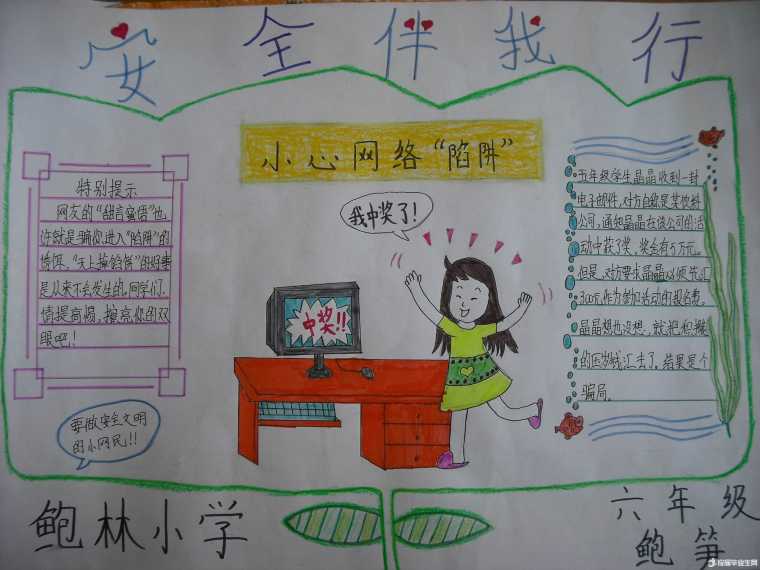 安全伴我行
小心网络“陷阱”
特别提示
网友的“甜言蜜语”也
许就是骗你进入“陷阱”的
诱饵，“天上掉馅饼”的好事
是从来不会发生的，同学们，
请提高惕，擦亮你的双
眼吧！
我中奖了！
中奖!!
五年级学生晶晶收到一封
电子邮件，对方自称是某饮料
公司，通知晶晶在该公司的活
动中获了奖，奖金有5万元。
但是，对方要求晶晶必须先汇
300元作为参加活动的报名费。
晶晶想也没想，就把积攒
的压岁钱汇去了。结果是个
骗局。
要做安全文明
的小网民!!
鲍林小学
六年级
鲍笋
应届毕业生网